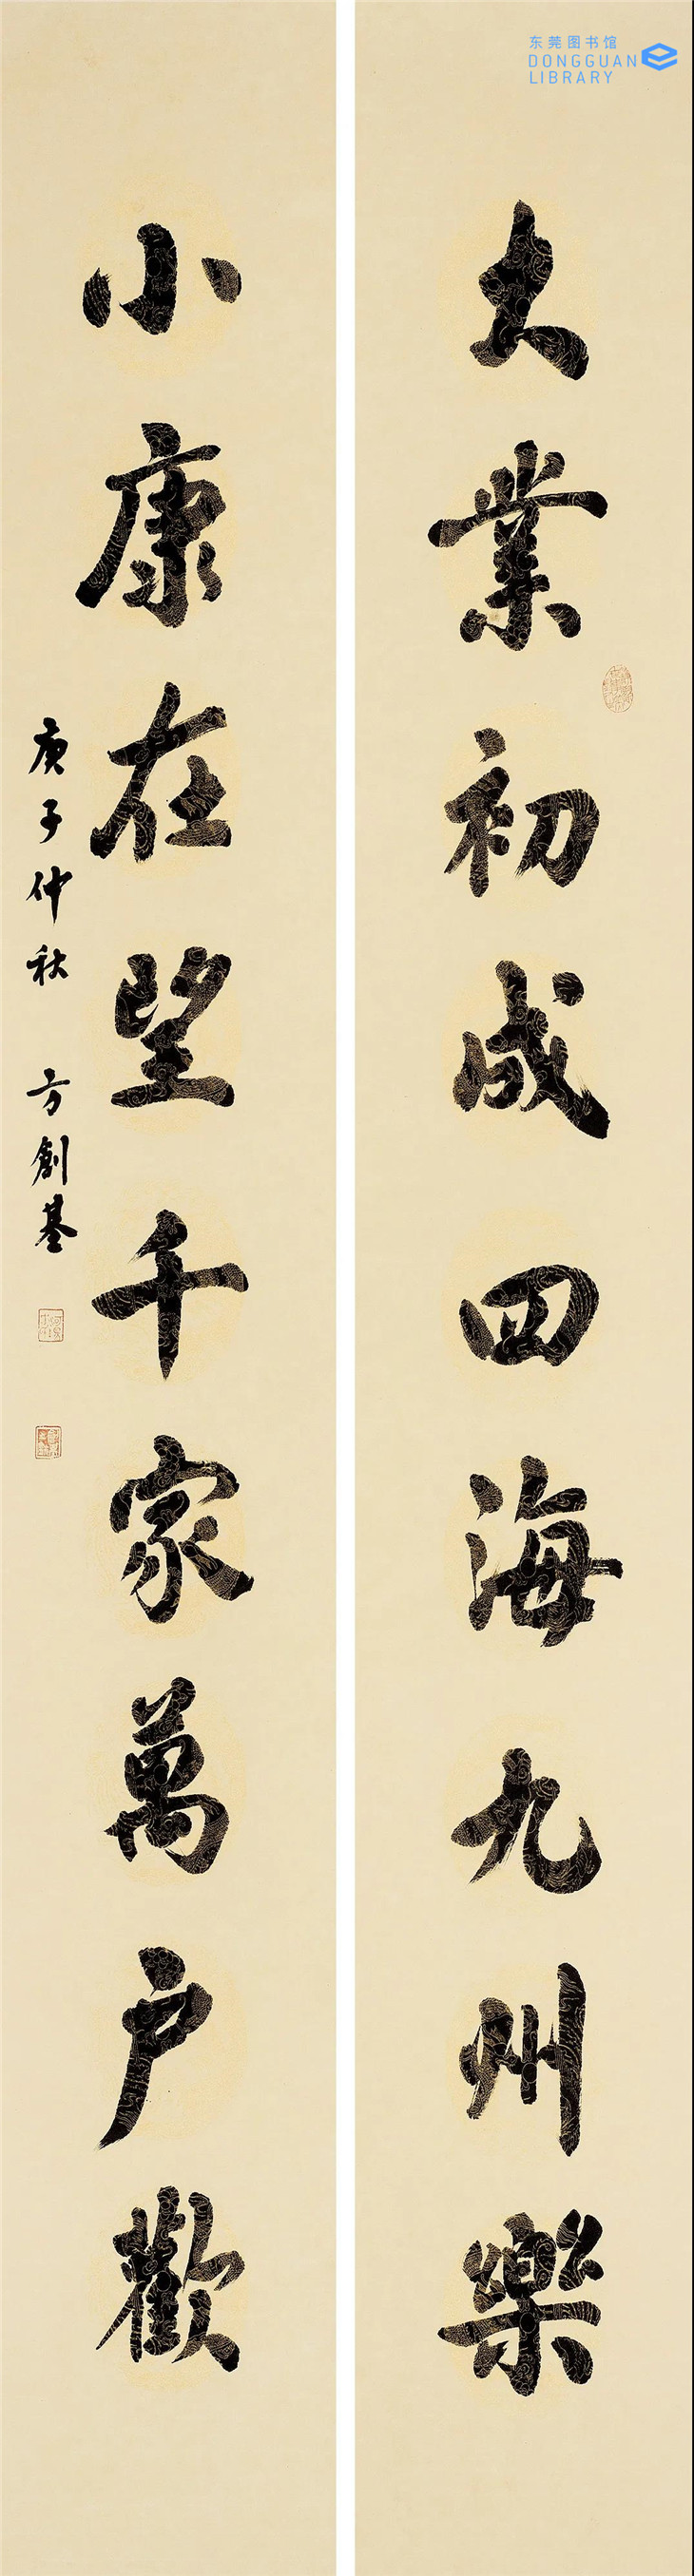 东莞图书馆
DONGGUAN
LIBRARY
大業初成四海九州樂
小康在望千家萬户歡
庚子仲秋 方創基